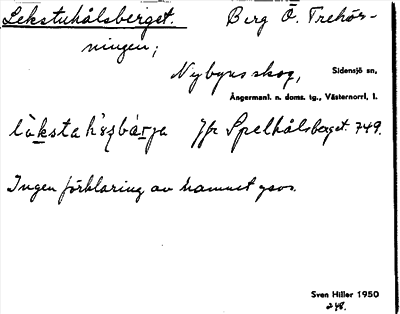 Lekstuhålsberget. Berg Ö. Trehör-
ningen;
Nybyns skog, Sidensjö sn,
Ångermanl. n. doms. tg., Västernorrl. l.
Jfr Spelhålsberget. 749.
Ingen förklaring av namnet gavs.
Sven Hiller 1950
248.